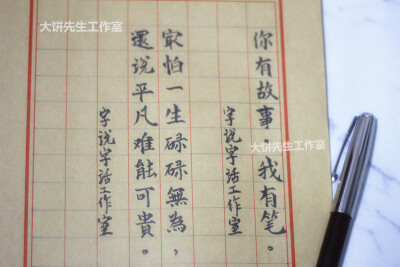 大饼先生工作室
你有故事,我有笔。
字说字话工作室
家怕一生碌碌無為,
還说平凡难能可貴。
字说字话工作室
大饼先生工作室